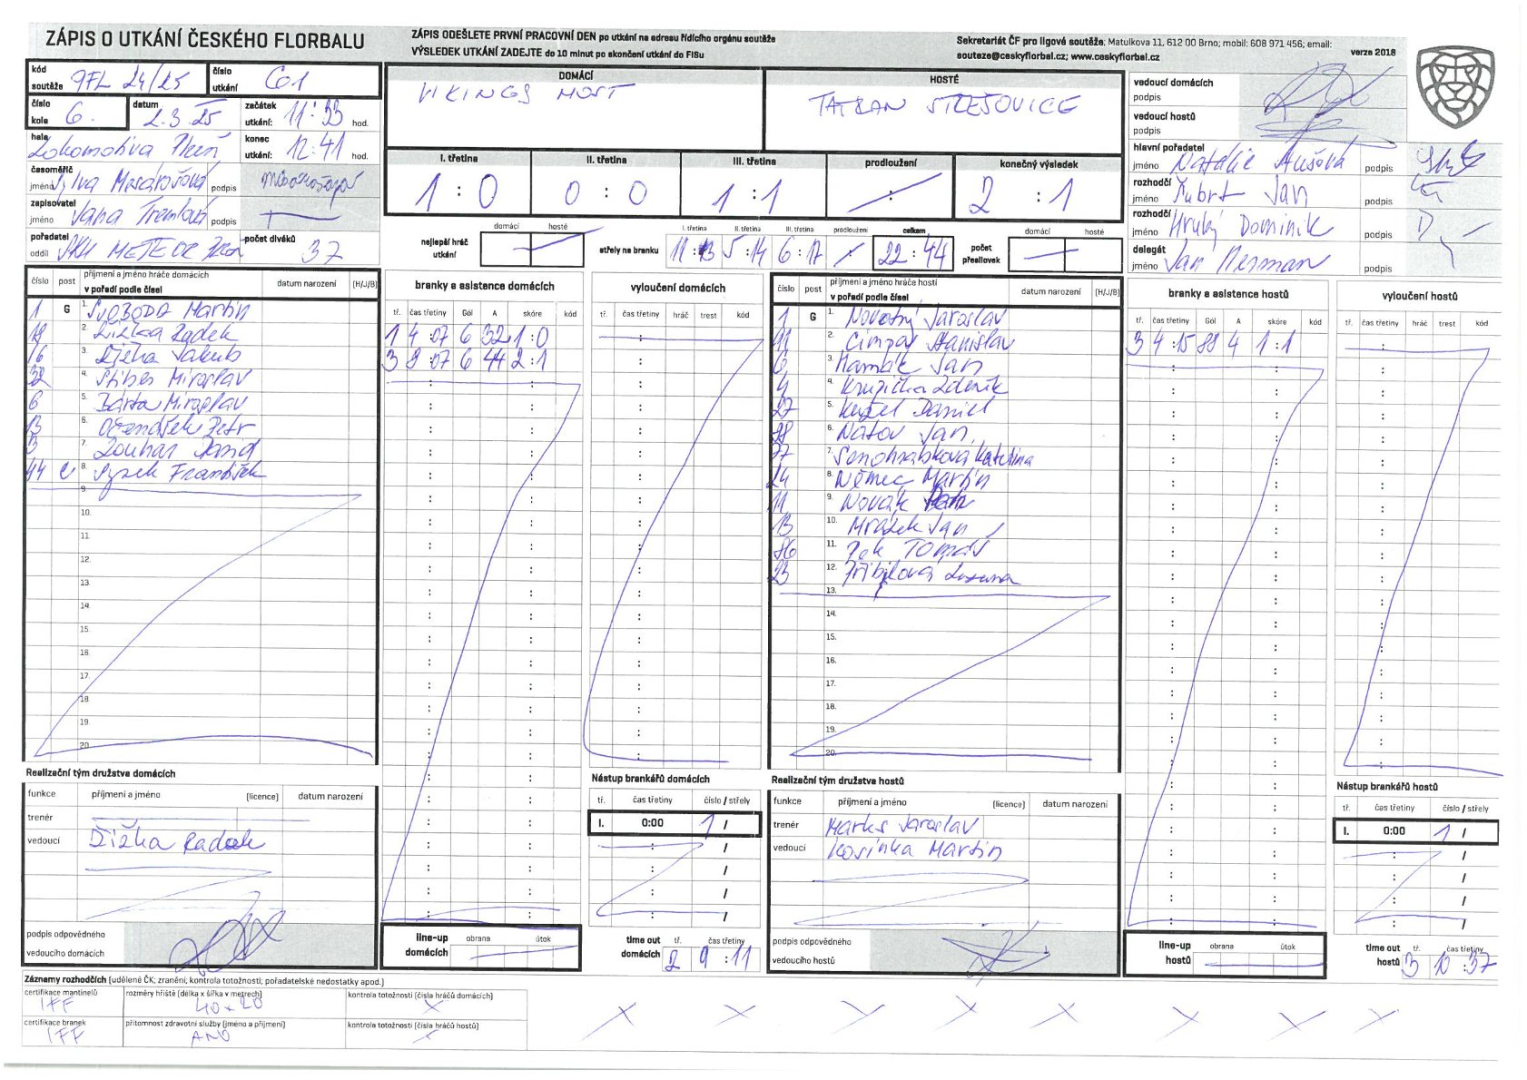 ZÁPIS O UTKÁNÍ ČESKÉHO FLORBALU
ZÁPIS ODEŠLETE PRVNÍ PRACOVNÍ DEN po utkání na adresu řídícího orgánu soutěže
VÝSLEDEK UTKÁNÍ ZADEJTE do 10 minut po skončení utkání do FISu
Sekretariát ČF pro ligové soutěže: Matulkova 11, 612 00 Brno; mobil: 608 971 456; email:
souteze@ceskyflorbal.cz; www.ceskyflorbal.cz
verze 2018
kód soutěže 9FL 24/25
číslo utkání G1
číslo kola 6.
datum 2.3.25
začátek utkání: 11:33 hod.
hala Lokomotiva Plzeň
konec utkání: 12:41 hod.
časoměřič
jméno podpis
zapisovatel
jméno Jana podpis
pořadatel
oddíl METEOR
počet diváků 37
DOMÁCÍ
VIKINGS MOST
HOSTÉ
TATRAN STŘEŠOVICE
I. třetina II. třetina III. třetina prodloužení konečný výsledek
1 : 0 0 : 0 1 : 1 : 2 : 1
nejlepší hráč utkání domácí hosté
střely na branku I. třetina II. třetina III. třetina prodloužení celkem
11 : 13 5 : 14 6 : 17 22 : 44
počet přesilovek domácí hosté
vedoucí domácích
podpis
vedoucí hostů
podpis
hlavní pořadatel
jméno Natálie podpis
rozhodčí
jméno Kubrt Jan podpis
rozhodčí
jméno Hrubý Dominik podpis
delegát
jméno Jan podpis
číslo post příjmení a jméno hráče domácích v pořadí podle čísel datum narození (H/J/B)
1 G 1. SVOBODA Martin
2. Žižka Radek
16 3. Jakub
32 4. Miroslav
6 5. Bárta Miroslav
13 6. Petr
7. Zouhar
44 C 8. František
9.
10.
11.
12.
13.
14.
15.
16.
17.
18.
19.
20.
branky a asistence domácích
tř. čas třetiny Gól A skóre kód
1 4:07 6 32 1:0
3 8:07 6 44 2:1
vyloučení domácích
tř. čas třetiny hráč trest kód
číslo post příjmení a jméno hráče hostí v pořadí podle čísel datum narození (H/J/B)
1 G 1. Novotný Jaroslav
91 2. Stanislav
6 3. Jan
4 4. Krupička Zdeněk
27 5. Daniel
88 6. Natov Jan
77 7. Kateřina
24 8. Němec Martin
11 9. Novák
13 10. Mrázek Jan
86 11. Tomáš
23 12. Přibylová Zuzana
13.
14.
15.
16.
17.
18.
19.
20.
branky a asistence hostů
tř. čas třetiny Gól A skóre kód
3 4:15 88 4 1:1
vyloučení hostů
tř. čas třetiny hráč trest kód
Realizační tým družstva domácích
funkce příjmení a jméno (licence) datum narození
trenér
vedoucí Žižka Radek
podpis odpovědného
vedoucího domácích
line-up domácích obrana útok
Nástup brankářů domácích
tř. čas třetiny číslo / střely
I. 0:00 1 /
time out domácích tř. čas třetiny
2 9:11
Realizační tým družstva hostů
funkce příjmení a jméno (licence) datum narození
trenér Jaroslav
vedoucí Kosinka Martin
podpis odpovědného
vedoucího hostů
line-up hostů obrana útok
Nástup brankářů hostů
tř. čas třetiny číslo / střely
I. 0:00 1 /
time out hostů tř. čas třetiny
3 10:37
Záznamy rozhodčích (udělené ČK; zranění; kontrola totožnosti; pořadatelské nedostatky apod.)
certifikace mantinelů IFF
rozměry hřiště (délka x šířka v metrech) 40 x 20
kontrola totožnosti (čísla hráčů domácích) X
certifikace branek IFF
přítomnost zdravotní služby (jméno a příjmení) ANO
kontrola totožnosti (čísla hráčů hostů) X